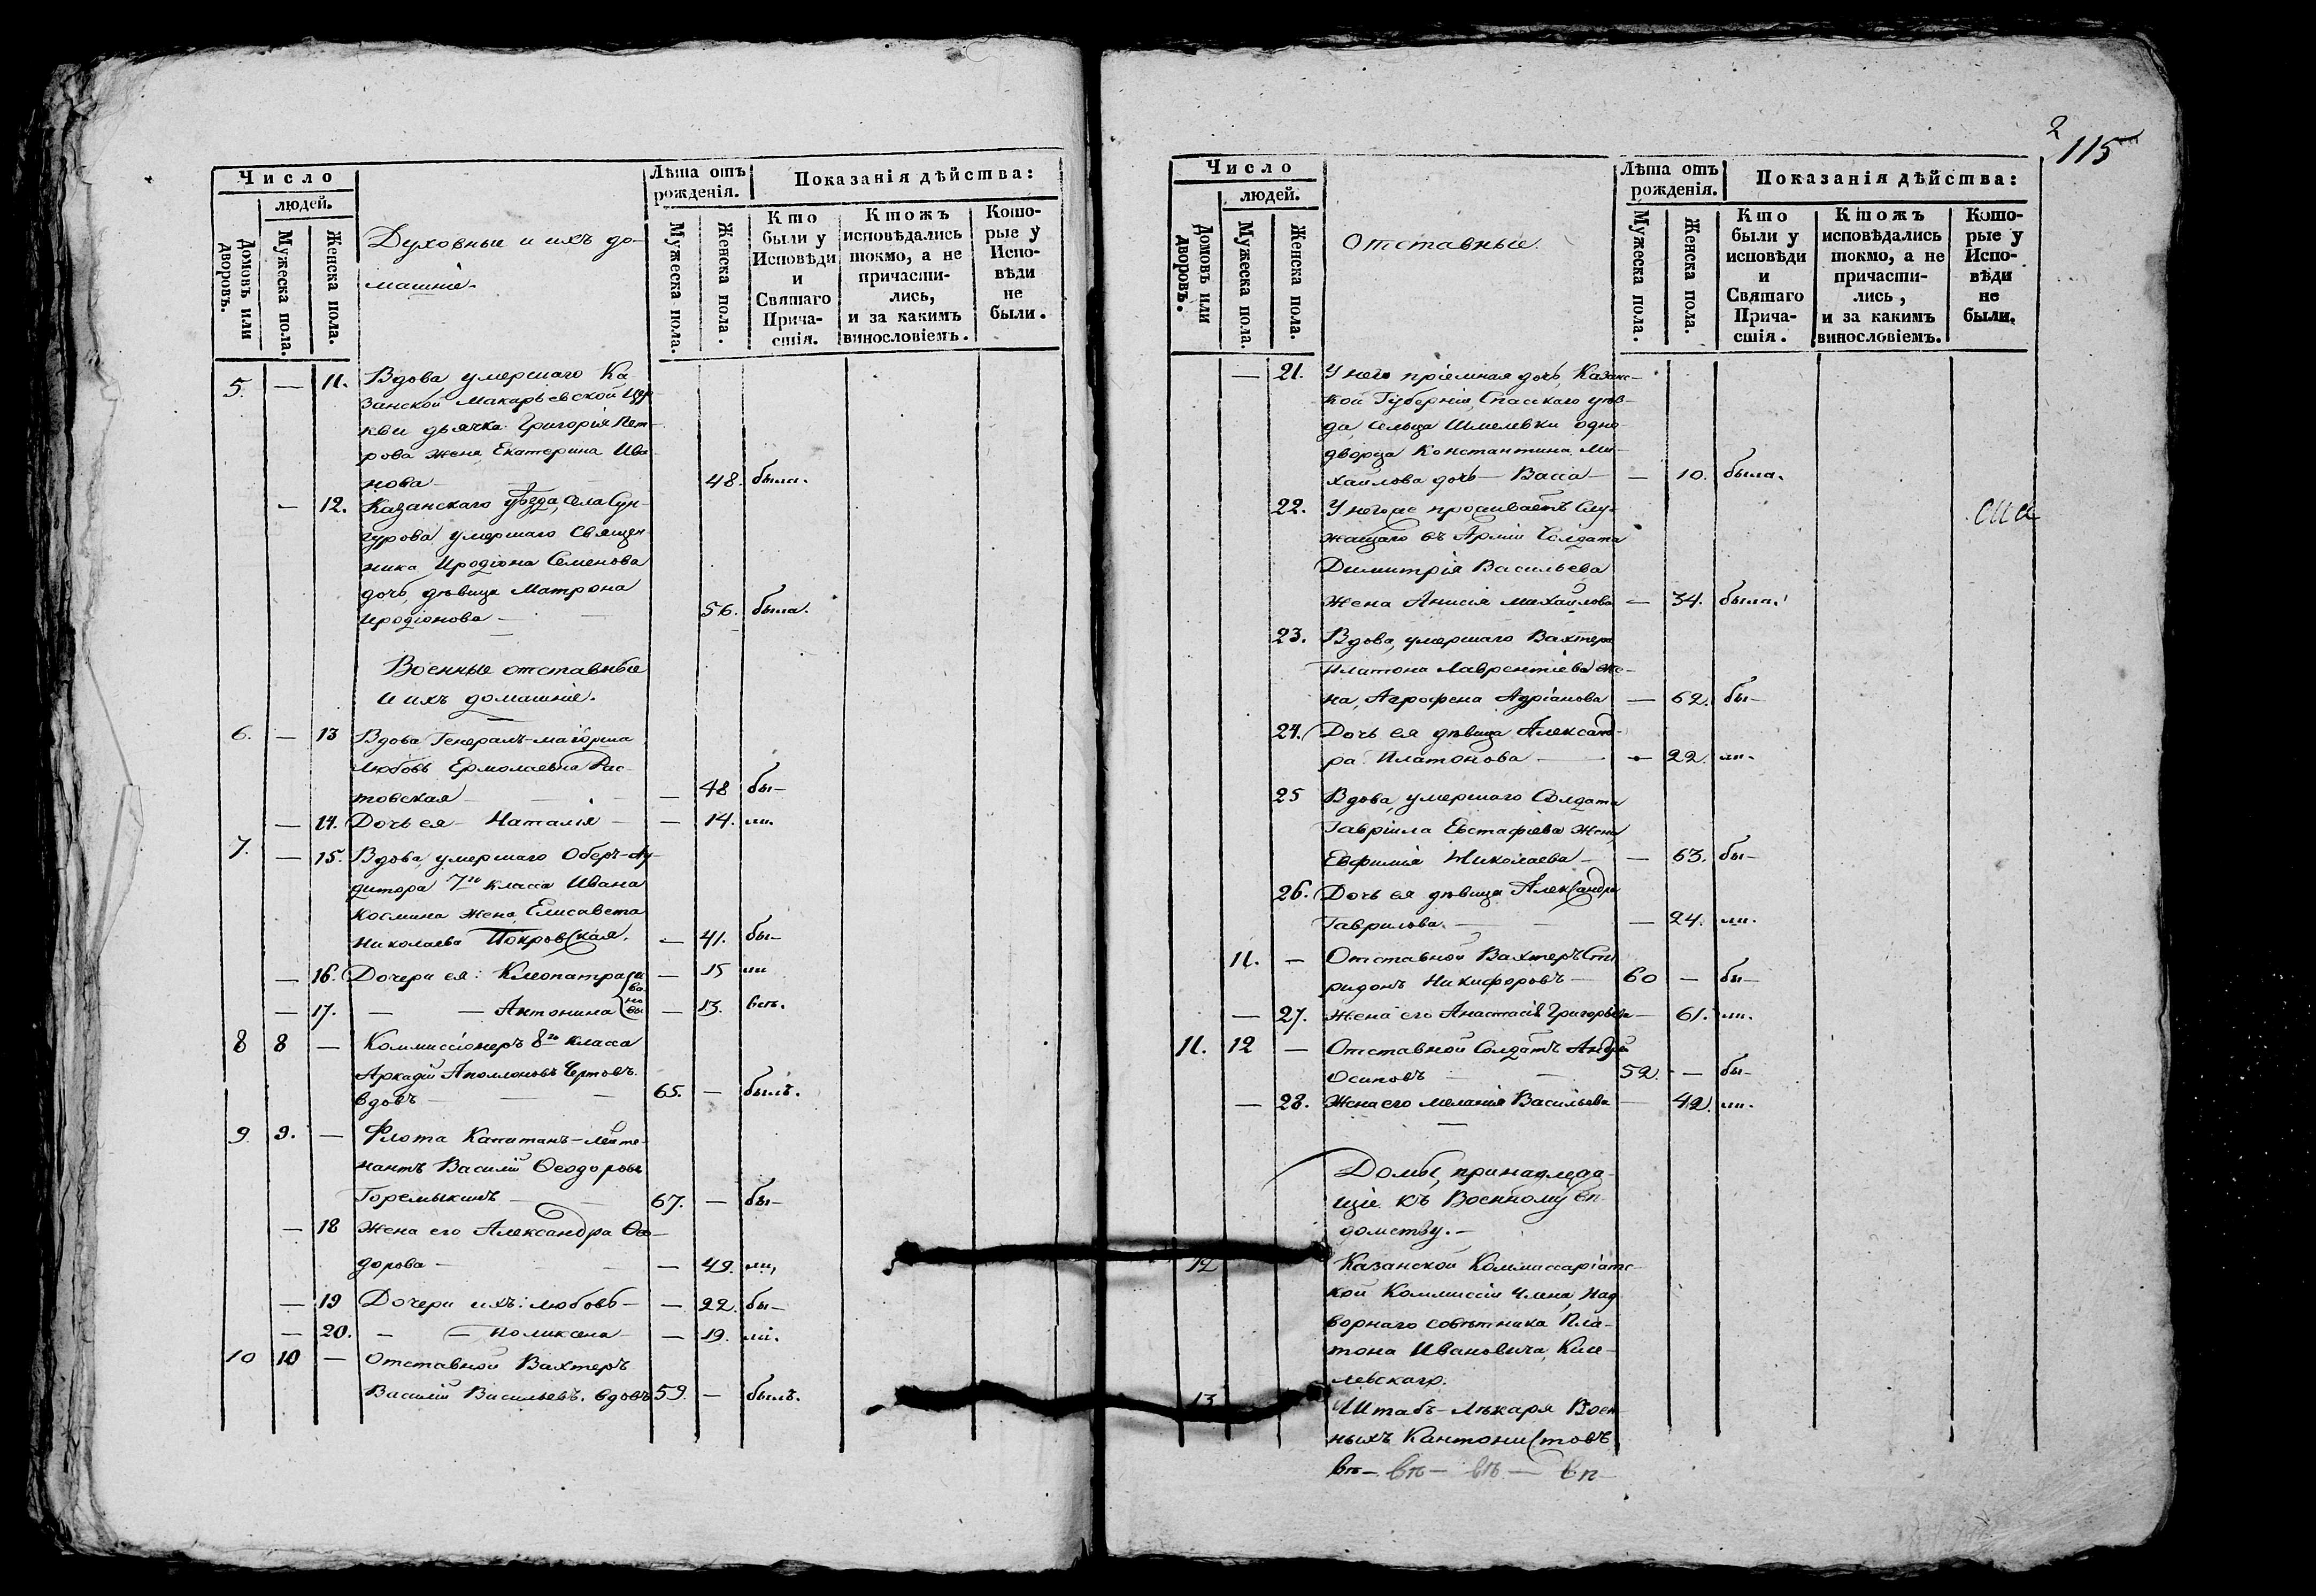 Число
людей.
Домовъ или дворовъ.
Мужеска пола.
Женска пола.
Духовные и ихъ до-
машніе.
Лѣта отъ
рожденія.
Мужеска пола.
Женска пола.
Показанія дѣйства:
Кто
были у
Исповѣди
и
Святаго
Прича-
стія.
Ктожъ
исповѣдались
токмо, а не
причасти-
лись,
и за какимъ
винословіемъ.
Кото-
рые у
Испо-
вѣди
не
были.
5. — 11. Вдова умершаго Ка-
занской Макарьевской Цер-
кви дьячка Григорія Пет-
рова жена Екатерина Ива-
нова — 48. была.
— 12. Казанскаго уѣзда, села Сун-
гурова умершаго Священ-
ника Иродіона Семенова
дочь, дѣвица Матрона
Иродіонова — 56. была.
Военные отставные
и ихъ домашніе.
6. — 13 Вдова Генералъ-маіорша
Любовь Ермолаевна Рас-
товская — — 48 бы—
— 14. Дочь ея — Наталія — — 14. ли.
7. — 15. Вдова, умершаго Оберъ-Ау-
дитора 7го класса Ивана
Космина жена Елисавета
Николаева Покровская. — 41. бы—
— 16. Дочери ея: Клеопатра — 15 ли
— 17. — — Антонина — 13. всѣ.
8 8 — Коммиссіонеръ 8го класса
Аркадій Аполлоновъ Чертовъ.
вдовъ — — — 65. — былъ.
9. 9. — Флота Капитанъ-лейте-
нантъ Василій Ѳеодоровъ
Горемыкинъ — 67. — бы—
— 18 Жена его Александра Ѳео-
дорова — — — 49. ли,
— 19 Дочери ихъ: Любовь — — 22. бы—
— 20. — — Поликсена — — 19. ли.
10 10 — Отставной Вахтеръ
Василій Васильевъ. вдовъ 59. — былъ.
2
115
Число
людей.
Домовъ или дворовъ.
Мужеска пола.
Женска пола.
Отставные.
Лѣта отъ
рожденія.
Мужеска пола.
Женска пола.
Показанія дѣйства:
Кто
были у
исповѣди
и
Святаго
Прича-
стія.
Ктожъ
исповѣдались
токмо, а не
причасти-
лись,
и за какимъ
винословіемъ.
Кото-
рые у
Испо-
вѣди
не
были.
— 21. У него пріемная дочь, Казанс-
кой Губерніи, Спасскаго уѣз-
да, сельца Шмелевки одно-
дворца Константина Ми-
хайлова дочь — Васса — — 10. была.
22. У него же проживаетъ Слу-
жащаго въ Арміи Солдата
Димитрія Васильева
жена Анисія Михайлова — 34. была.
23. Вдова, умершаго Вахтера
Платона Лаврентіева же-
на, Агрофена Адріанова — 62. бы—
24. Дочь ея дѣвица Александ-
ра Платонова — — 22. ли.
25 Вдова, умершаго Солдата
Гавріила Евстафіева жена,
Евфимія Николаева — — 63. бы—
26. Дочь ея дѣвица Александра
Гаврилова. — — — 24. ли.
11. — Отставной Вахтеръ Спи-
ридонъ Никифоровъ — 60 — бы—
— 27. Жена его Анастасія Григорьева — 61. ли.
11. 12 — Отставной Солдатъ Андрей
Осиповъ — — 52. — бы—
— 28. Жена его Меланія Васильева — 42. ли.
Домы, принадлежа-
щіе къ Военному вѣ-
домству.—
12 Казанской Коммиссаріатс-
кой Коммиссіи Члена, Над-
ворнаго совѣтника Пла-
тона Ивановича, Кше-
левскаго.
13 Штабъ-лѣкаря Воен-
ныхъ Кантонистовъ